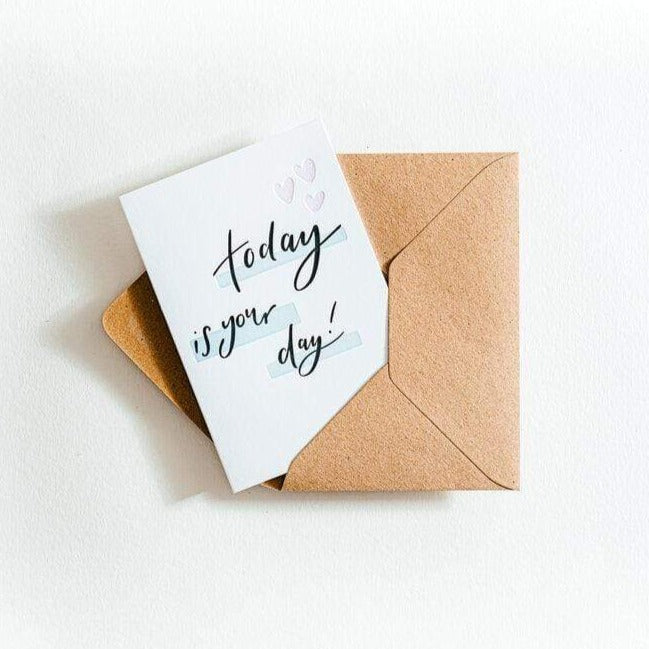 today
is your
day!